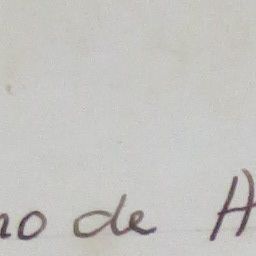 no de A